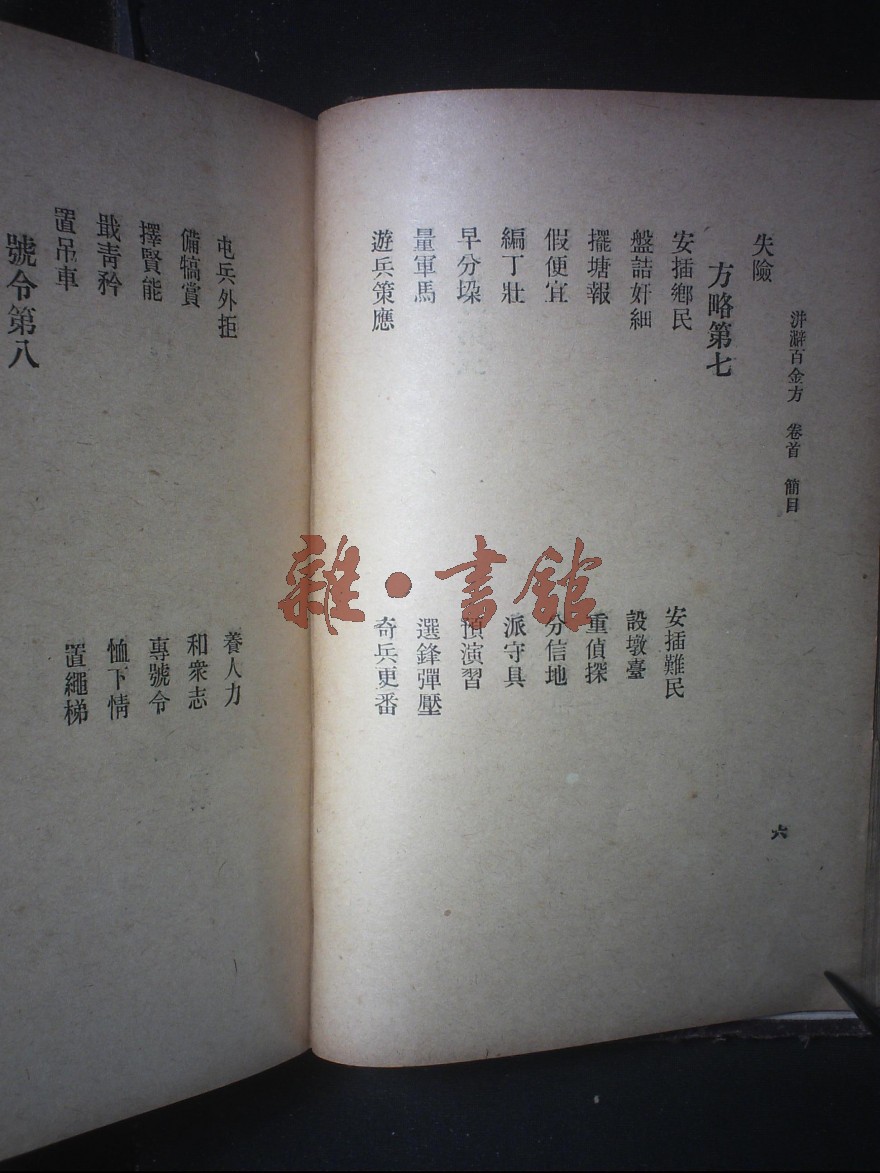 洴澼百金方　卷首　簡目
六
失險
方略第七
安插鄉民　安插難民
盤詰奸細　設墩臺
擺塘報　重偵探
假便宜　分信地
編丁壯　派守具
早分垛　預演習
量軍馬　選鋒彈壓
遊兵策應　奇兵更番
屯兵外拒　養人力
備犒賞　和衆志
擇賢能　專號令
戢靑衿　恤下情
置吊車　置繩梯
號令第八
雜·書館